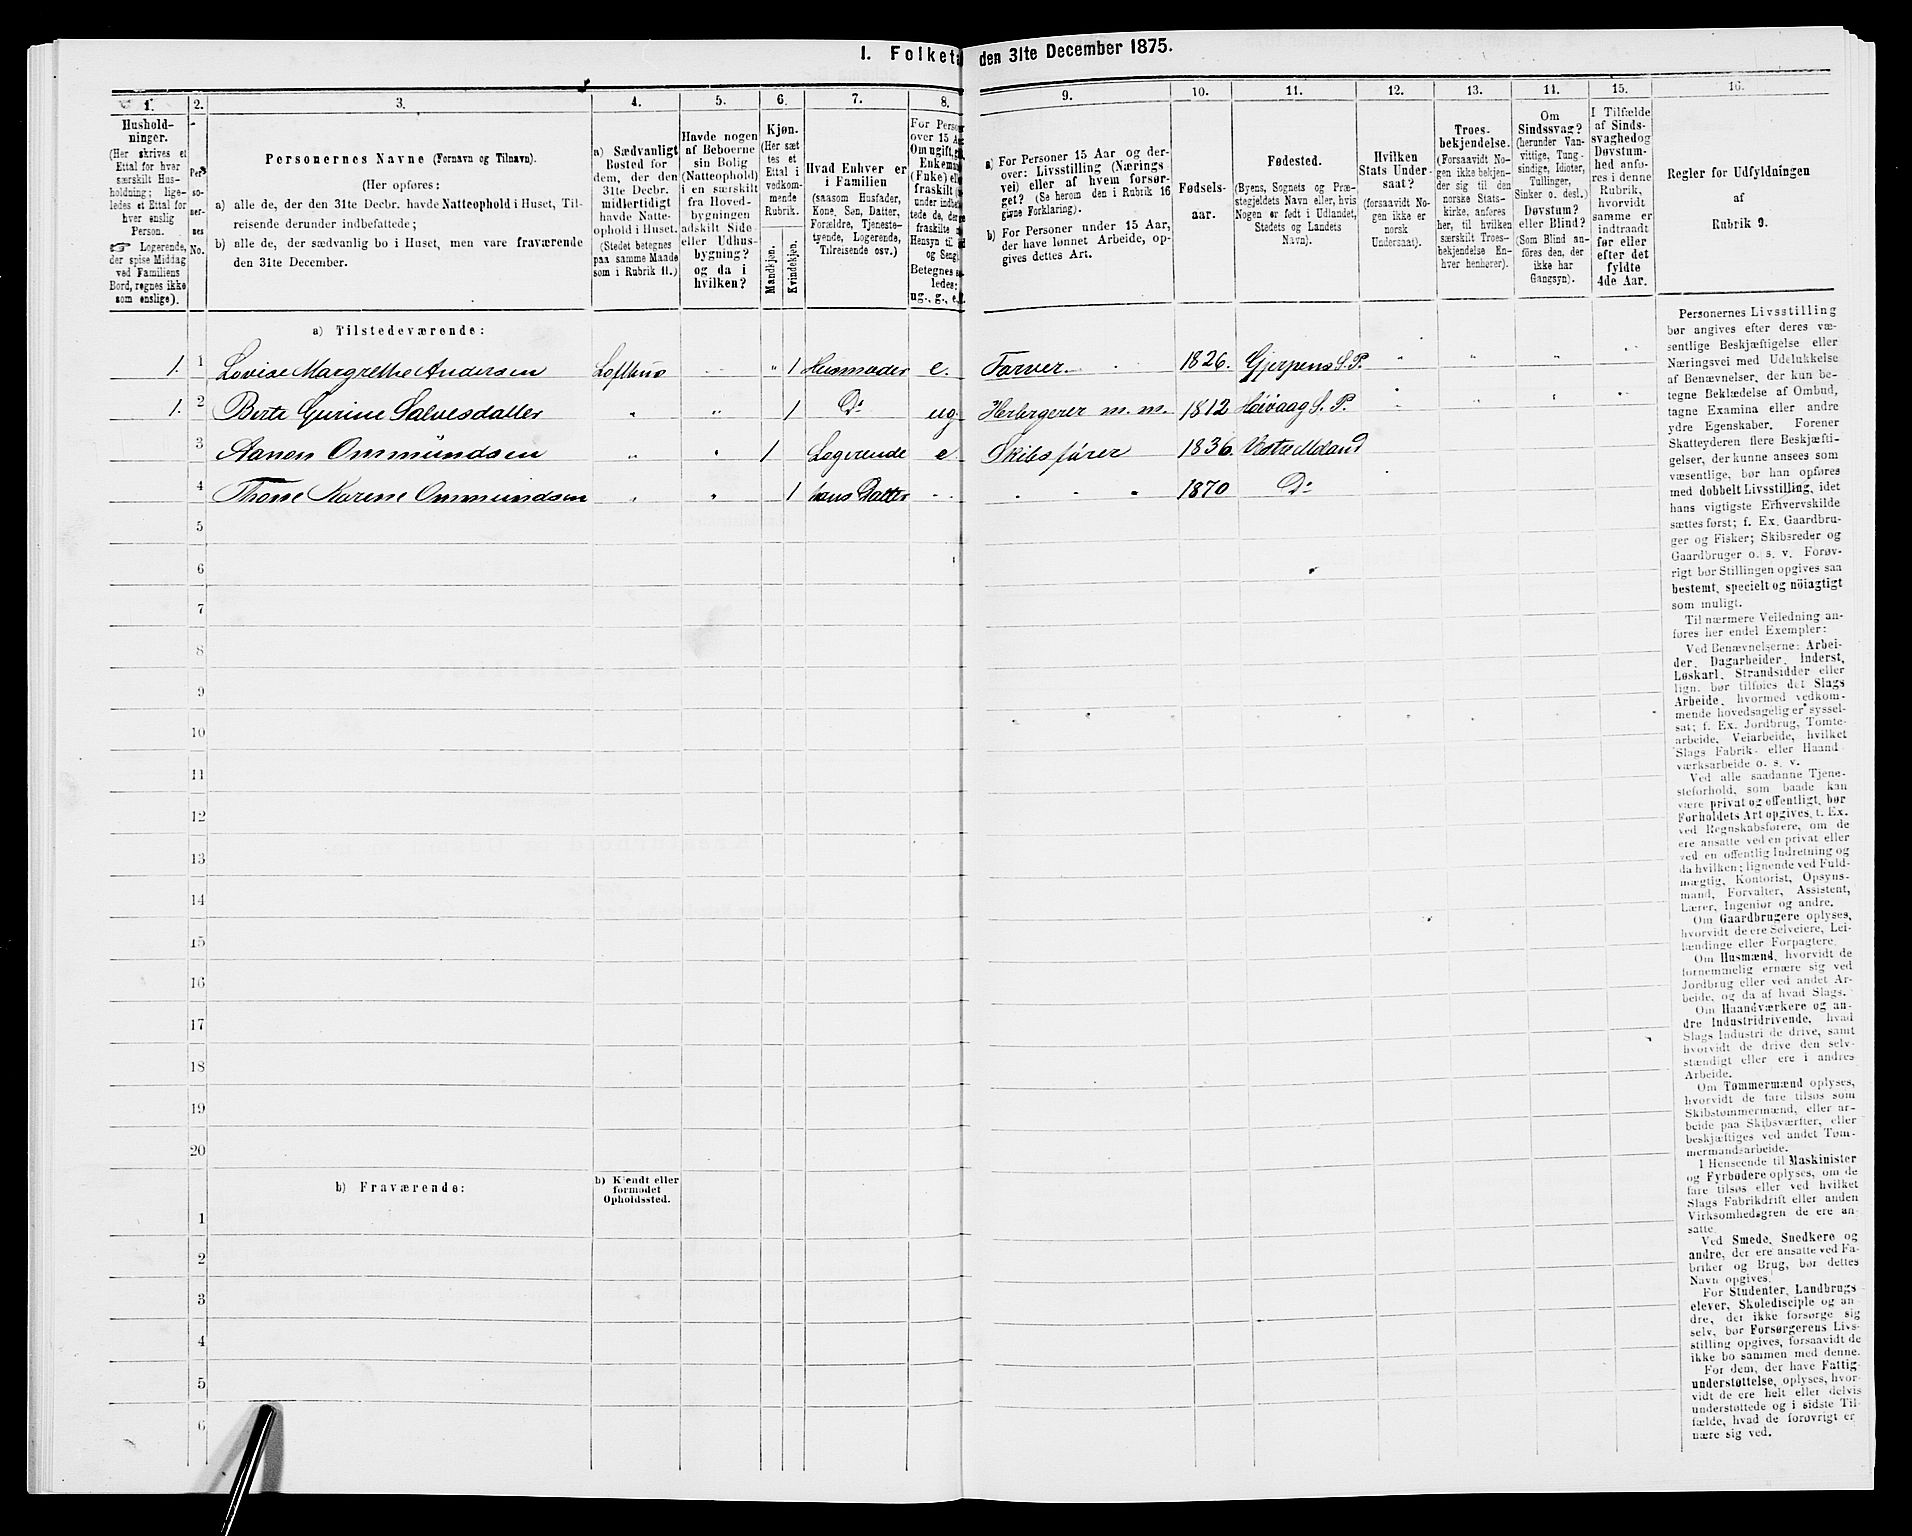 I. Folketal den 31te December 1875.
1. 2. 3. 4. 5. 6. 7. 8. 9. 10. 11. 12. 13. 14. 15. 16.
Hushold-
ninger.
(Her skrives et
Ettal for hver
særskilt Hus-
holdning; lige-
ledes et Ettal for
hver enslig
Person.
☞ Logerende,
der spise Middag
ved Familiens
Bord, regnes ikke
som enslige).
Per-
so-
ner-
nes
No.
Personernes Navne (Fornavn og Tilnavn).
(Her opføres:
a) alle de, der den 31te Decbr. havde Natteophold i Huset, Til-
reisende derunder indbefattede;
b) alle de, der sædvanlig bo i Huset, men vare fraværende
den 31te December.
a) Sædvanligt
Bosted for
dem, der den
31te Decbr.
midlertidigt
havde Natte-
ophold i Huset.
(Stedet betegnes
paa samme Maade
som i Rubrik 11.)
Havde nogen
af Beboerne
sin Bolig
(Natteophold)
i en særskilt
fra Hoved-
bygningen
adskilt Side-
eller Udhus-
bygning?
og da i
hvilken?
Kjøn.
(Her sæt-
tes et
Ettal i
vedkom-
mende
Rubrik.
Mandkjøn.
Kvindekjøn.
Hvad Enhver er
i Familien
(saasom Husfader,
Kone, Søn, Datter,
Forældre, Tjeneste-
tyende, Logerende,
Tilreisende osv.)
For Person
over 15 Aa
Om ugift, gi
Enkeman
(Enke) elle
fraskilt (
under indbe
tede de, der e
fraskilte
Hensyn til
og Seng).
Betegnes s
ledes:
ug., g., e.,
a) For Personer 15 Aar og der-
over: Livsstilling (Nærings-
vei) eller af hvem forsør-
get? (Se herom den i Rubrik 16
givne Forklaring).
b) For Personer under 15 Aar,
der have lønnet Arbeide, op-
gives dettes Art.
Fødsels-
aar.
Fødested.
(Byens, Sognets og Præ-
stegjeldets Navn eller, hvis
Nogen er født i Udlandet,
Stedets og Landets
Navn).
Hvilken
Stats Under-
saat?
(forsaavidt No-
gen ikke er
norsk
Undersaat).
Troes-
bekjendelse.
(Forsaavidt No-
gen ikke bekjen-
der sig til den
norske Stats-
kirke, anføres
her, til hvilken
særskilt Troes-
bekjendelse En-
hver henhører).
Om
Sindssvag?
(herunder Van-
vittige, Tung-
sindige, Idioter,
Tullinger,
Sinker o. desl.)
Døvstum?
eller Blind?
(Som Blind an-
føres den, der
ikke har
Gangsyn).
I Tilfælde
af Sinds-
svaghed og
Døvstum-
hed anfø-
res i denne
Rubrik,
hvorvidt
samme er
indtraadt
før eller
efter det
fyldte
4de Aar.
Regler for Udfyldningen
af
Rubrik 9.
a) Tilstedeværende:
1. 1 Lovise Margrethe Andersen Lofthus " 1 Husmoder e. Farver. 1826. Gjerpens S.P. " " " "
1. 2 Birte Gurine Salvesdatter " " 1 Do ug. Herbergerer m. m. 1812 Høivaag S. P. " " " "
3 Aanon Ommundsen " " 1 Logerende e Skibsfører 1836. Vestre Moland
4 Thone Karene Ommundsen " " 1 hans Datter " " " 1870 Do
5
6
7
8
9
10
11
12
13
14
15
16
17
18
19
20
b) Fraværende:
b) Kjendt eller
formodet
Opholdssted.
1
2
3
4
5
6
Personernes Livsstilling
bør angives efter deres væ-
sentlige Beskjæftigelse eller
Næringsvei med Udelukkelse
af Benævnelser, der kun be-
tegne Beklædelse af Ombud,
tagne Examina eller andre
ydre Egenskaber. Forener
Skatteyderen flere Beskjæfti-
gelser, der kunne ansees som
væsentlige, bør han opføres
med dobbelt Livsstilling, idet
hans vigtigste Erhvervskilde
sættes først; f. Ex. Gaardbru-
ger og Fisker; Skibsreder og
Gaardbruger o. s. v. Forøv-
rigt bør Stillingen opgives saa
bestemt, specielt og nöiagtigt
som muligt.
Til nærmere Veiledning an-
føres her endel Exempler:
Ved Benævnelserne: Arbei-
der, Dagarbeider, Inderst,
Løskarl, Strandsidder eller
lign. bør tilføies det Slags
Arbeide, hvormed vedkom-
mende hovedsagelig er syssel-
sat; f. Ex. Jordbrug, Tomte-
arbeide, Veiarbeide, hvilket
Slags Fabrik- eller Haand-
værksarbeide o. s. v.
Ved alle saadanne Tjene-
steforhold, som baade kan
være privat og offentligt, bør
Forholdets Art opgives, f. Ex.
ved Regnskabsførere, om de
ere ansatte ved en privat eller
ved en offentlig Indretning og
da hvilken; lignende ved Fuld-
mægtig, Kontorist, Opsyns-
mand, Forvalter, Assistent,
Lærer, Ingeniør og andre.
Om Gaardbrugere oplyses,
hvorvidt de ere Selveiere, Lei-
lændinge eller Forpagtere.
Om Husmænd, hvorvidt de
fornemmelig ernære sig ved
Jordbrug eller ved andet Ar-
beide, og da af hvad Slags.
Om Haandværkere og an-
dre Industridrivende, hvad
Slags Industri de drive, samt
hvorvidt de drive den selv-
stændigt eller ere i andres
Arbeide.
Om Tømmermænd oplyses,
hvorvidt de fare tilsøs som
Skibstømmermænd, eller ar-
beide paa Skibsværfter, eller
beskjæftiges ved andet Tøm-
mermandsarbeide.
I Henseende til Maskinister
og Fyrbødere oplyses, om de
fare tilsøs eller ved hvilket
Slags Fabrikdrift eller anden
Virksomhedsgren de ere an-
satte.
Ved Smede, Snedkere og
andre, der ere ansatte ved Fa-
briker og Brug, bør dettes
Navn opgives.
For Studenter, Landbrugs-
elever, Skoledisciple og an-
dre, der ikke forsørge sig
selv, bør Forsørgerens Livs-
stilling opgives, forsaavidt de
ikke bo sammen med denne.
For dem, der have Fattig-
understøttelse, oplyses, hvor-
vidt de ere helt eller delvis
understøttede og i sidste Til-
fælde, hvad de forøvrigt er-
nære sig ved.